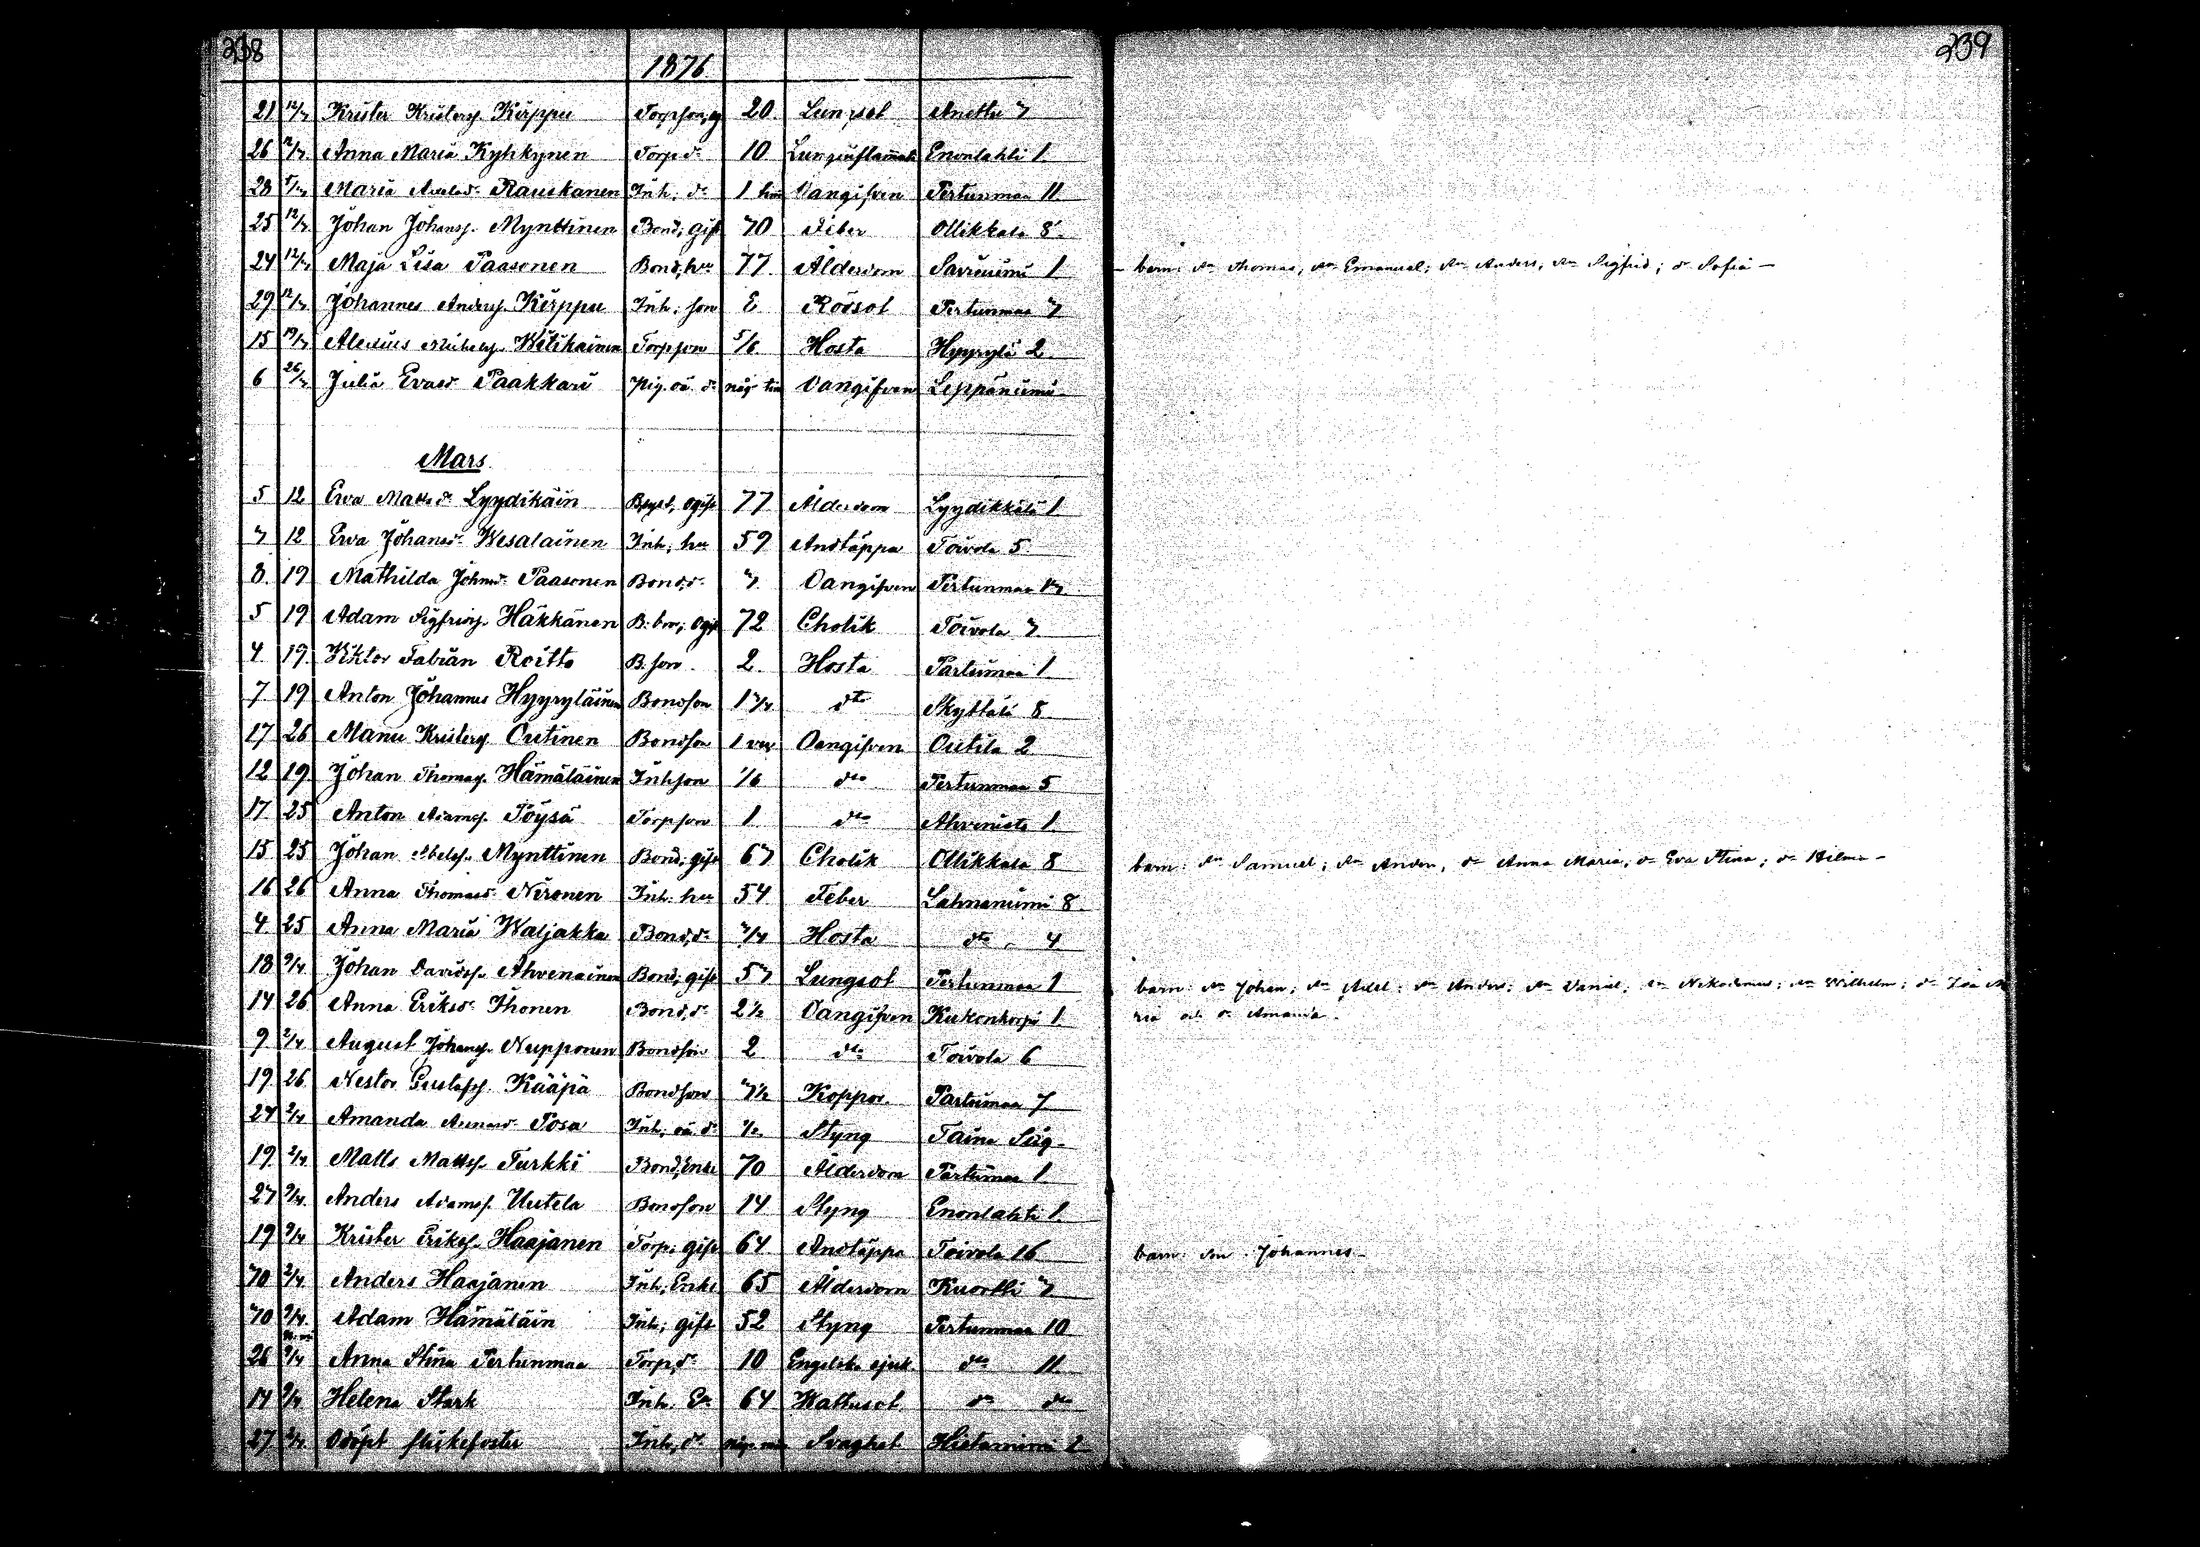 238
1876
21 12/7 Krister Kristerss. Kirppu Torpson, og 20 Lungsot Anetta 7
26 12/7 Anna Maria Kyhkynen Torp. dr 10 Enonlahti 1
28 Maria Rauskanen Inh. dr 1 Oangifven Pertunmaa 11
25 12/7 Johan Johanss. Mynttinen Bond; gift 70 Feber Ollikkala 8
24 12/7 Maja Lisa Paasonen Bond; hu 77 Ålderdom 1
29 12/7 Johannes Anderss. Kirppu Inh: son Rödsot Pertunmaa 7
15 19/7 Torpson 5/6 Hosta Hyyrylä 2
6 26/7 Julia Evasd. Paakkari Pig. oä. dr någ. tim Oangifven Leppäniemi
Mars
5 12 Eva Mattsdr Lyydikäin ogift 77 Ålderdom Lyydikkälä 1
7 12 Eva Johansdr Wesalainen Inh; hu 59 Andtäppa Toivola 5
8 19 Mathilda Johnsd. Paasonen Bond; dr 7 Oangifven Pertunmaa 17
5 19 Adam Sigfridss. Häkkänen B: bro; ogift 72 Cholik Toivola 7
4 19 Viktor Fabian Roitto B. son 2 Hosta Partimaa 1
7 19 Anton Johannes Hyyryläinen Bondson 1 3/4 dto Skyttälä 8
17 26 Manu Kristerss. Outinen Bondson 1 Oangifven Outila 2
12 19 Johan Thomass. Hämäläinen Inhson 1/6 dto Pertunmaa 5
17 25 Anton Adamss. Pöysä Torpson 1 dto Ahvenisto 1
15 25 Johan Abelss. Mynttinen Bond; gift 67 Cholik Ollikkala 8
16 26 Anna Thomasd. Nironen Inh: hu 54 Feber Lahnaniemi 8
4 25 Anna Maria Waljakka Bond; dr Hosta dto 4
18 9/4 Johan Davidss. Ahvenainen Bond; gift 57 Lungsot Pertunmaa 1
14 26 Anna Eriksdr Ihonen Bond; dr 2 1/2 Oangifven 1
9 2/4 August Johanss. Nupponen Bondson 2 dto Toivola 6
19 26 Nestor Gustafss. Kääpä Bondson 7 1/2 Koppor Partimaa 7
27 2/4 Amanda Annasd. Posa Inh; oä dr 1/2 Styng
19 2/4 Matts Mattss. Turkki Bond; Enkl 70 Ålderdom Partimaa 1
27 9/4 Anders Adamss. Uutela Bondson 14 Styng Enonlahti 1
19 9/4 Krister Erikss. Haajanen Torp; gift 64 Andtäppa Toivola 16
70 2/4 Anders Haajanen Inh; Enkl 65 Ålderdom Kuortti 7
70 9/4 Adam Hämäläin Inh; gift 52 Styng Pertunmaa 10
26 9/4 Anna Stina Pertunmaa Torp; dr 10 Engelska sjuk. dto 11
14 9/4 Helena Stark Inh. En 64 Wattusot dto dto
27 2/4 Odöpt flickefoster Inh; dr Svaghet 2
239
barn: sn Thomas, sn Emanuel; sn Anders, sn Sigfrid; dr Sofia
barn: sn Samuel; sn Anders, dr Anna Maria; dr Eva Stina; dr Hilma
barn: sn Johan; sn Adel; sn Anders; sn Daniel; sn Nikodemus; sn Wilhelm; dr Ma
ria och dr Amanda.
barn: son Johannes